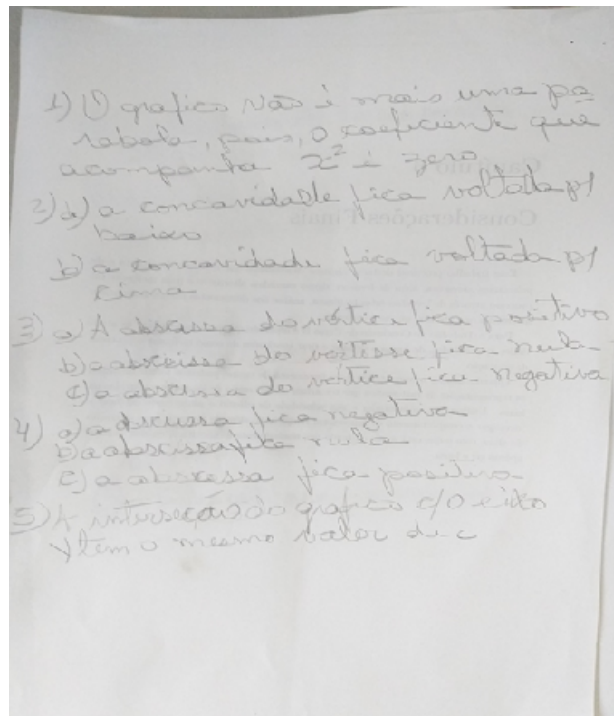 1) O grafico não é mais uma pa
rabola, pois, o coeficiente que
acompanha x² é zero
2) a) a concavidade fica voltada p/
baixo
b) a concavidade fica voltada p/
cima
3) a) A abscissa do vértice fica positivo
b) a abscissa do vértisse fica nula
c) a abscissa do vértice fica negativa
4) a) a fica negativa
b) a abscissa fica nula
c) a abscessa fica positiva
5) A interseção do grafico c/o eixo
y tem o mesmo valor de c
Considerações Finais